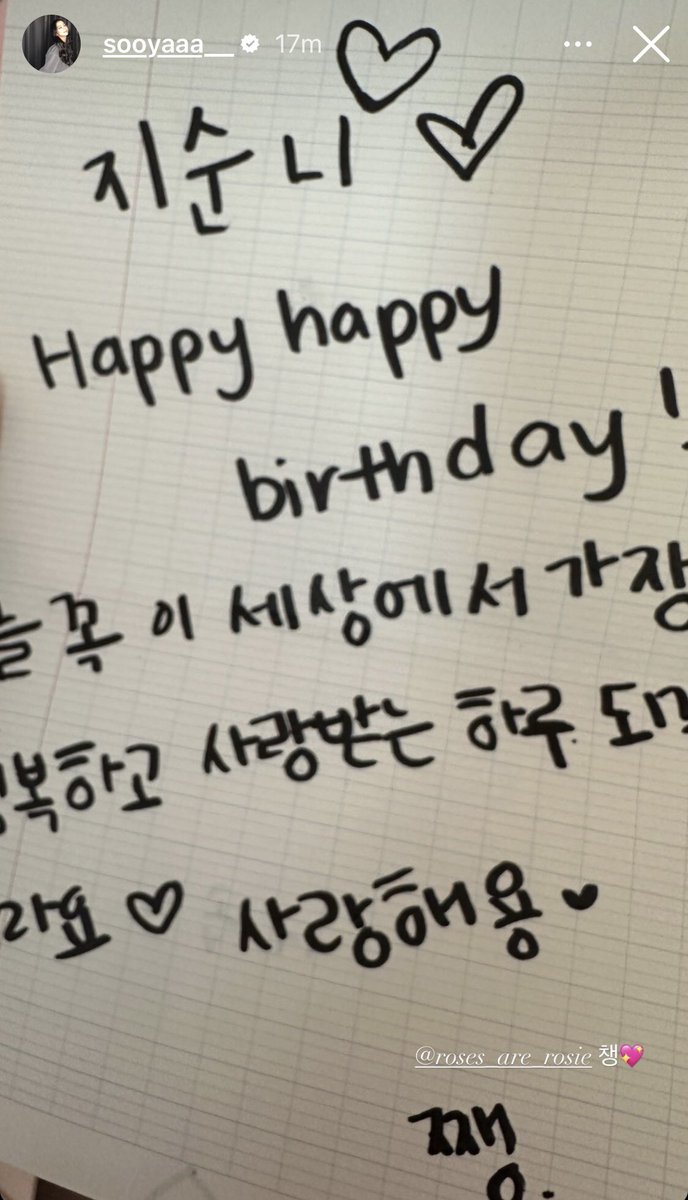 sooyaaa__ 17m
지순니
Happy happy
birthday!
늘 꼭 이 세상에서 가장
복하고 사랑받는 하루
라요 ♡ 사랑해용 ♥
@roses_are_rosie 챙💖
쨍